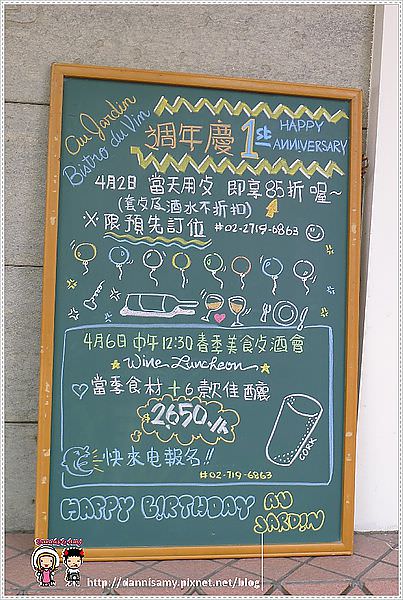 Au Jardin
Bistro du Vin
週年慶 1st HAPPY ANNIVERSARY
4月2日 當天用歺 即享85折喔~
(套歺及酒水不折扣)
※限預先訂位 #02-2719-6863
4月6日 中午12:30 春季美食歺酒會
Wine Luncheon
♡當季食材+6款佳釀
2650./人
CORK
快來电報名!!
#02-719-6863
HAPPY BIRTHDAY AU JARDIN
http://dannisamy.pixnet.net/blog